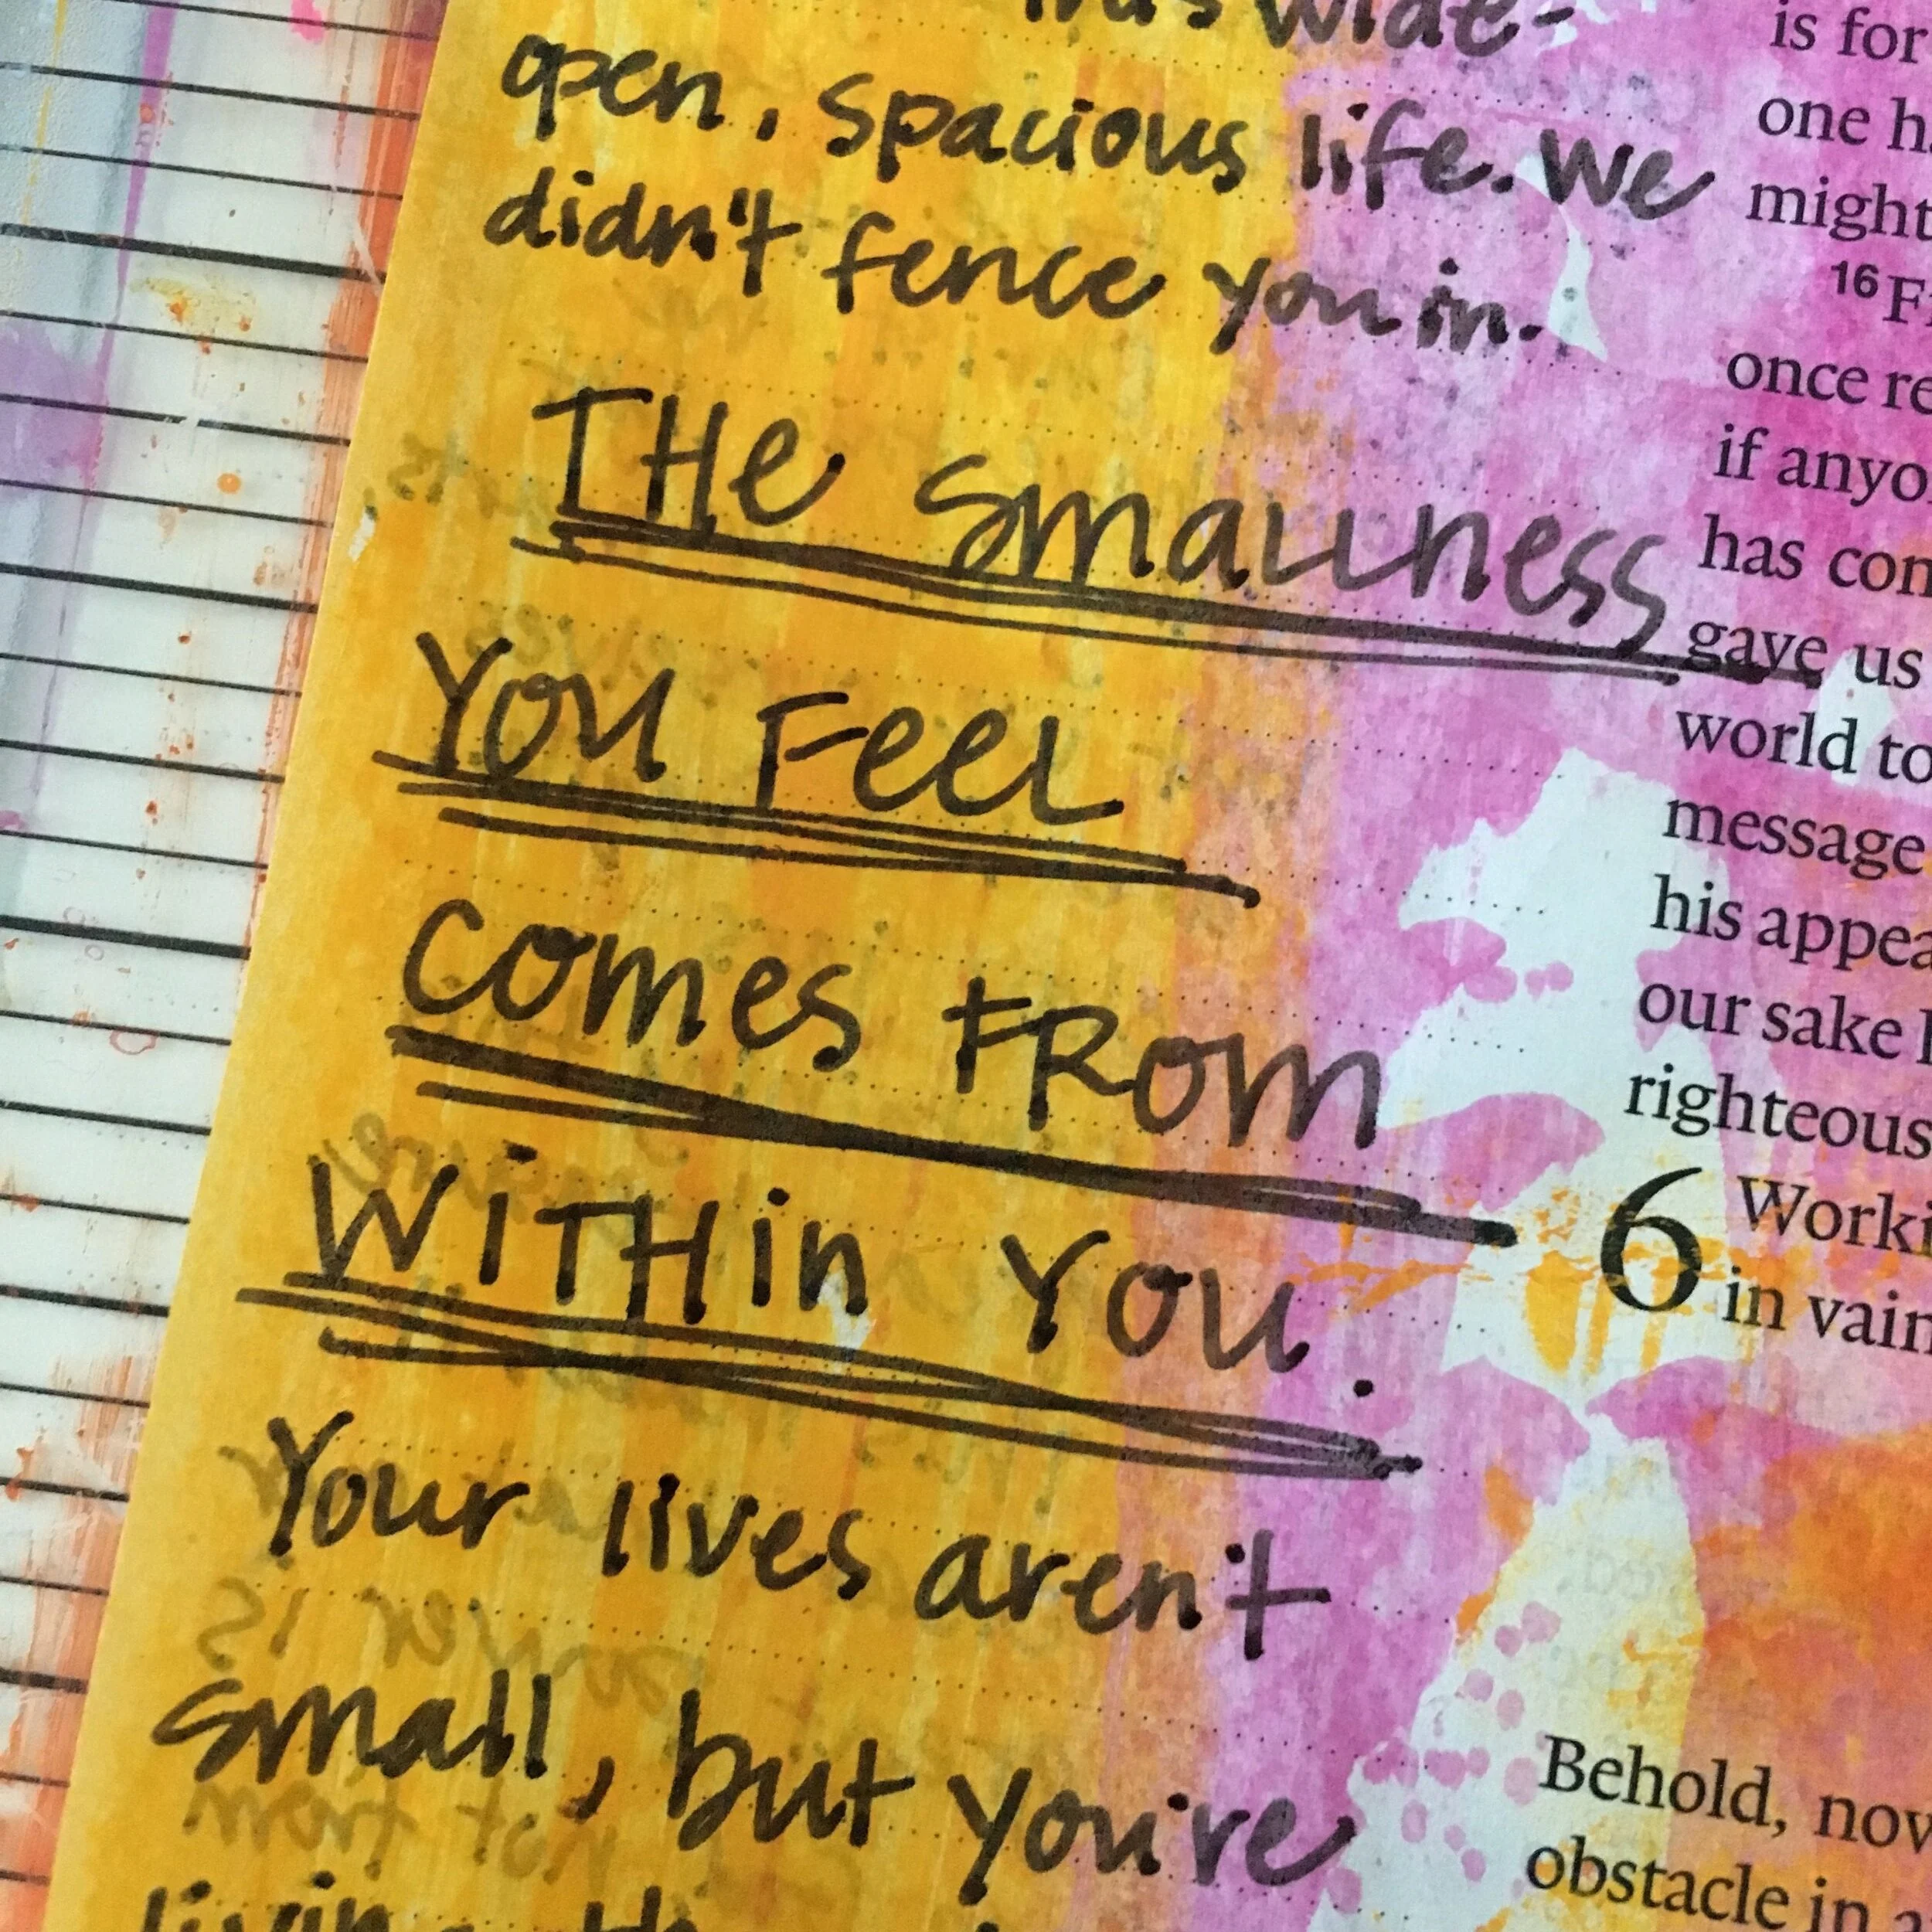 wide-
open, spacious life. We
didn't fence you in.
THe smallness
You Feel
comes from
WiTHin You.
Your lives aren't
small, but you're
is for
one
might
16
once
if
has
gave us
world to
message
his
our sake
righteous
6
in
Behold,
obstacle in